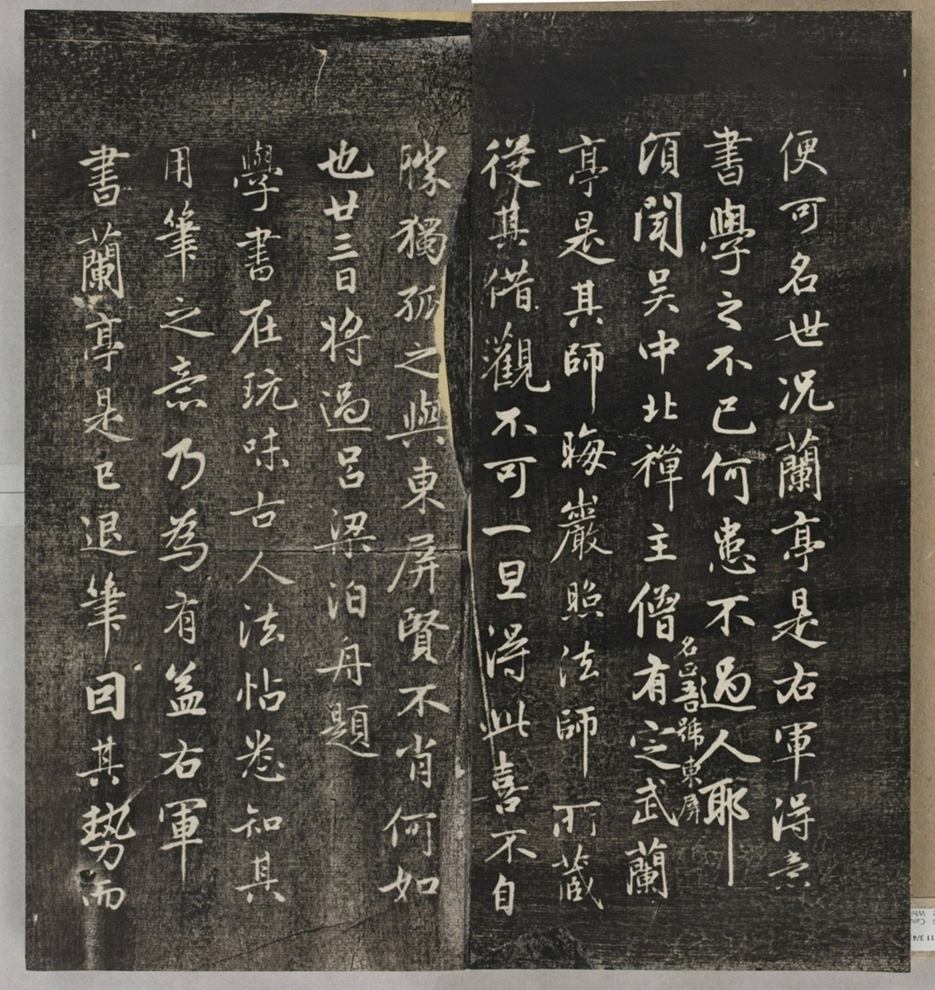 便可名世况蘭亭是右軍得意
書學之不已何患不過人耶
頃聞吴中北禪主僧名正吾號東屏有定武蘭
亭是其師晦巖照法師所藏
從其借觀不可一旦得此喜不自
勝獨孤之與東屏賢不肖何如
也廿三日將過吕梁泊舟題
學書在玩味古人法帖悉知其
用筆之意乃為有益右軍
書蘭亭是已退筆因其勢而